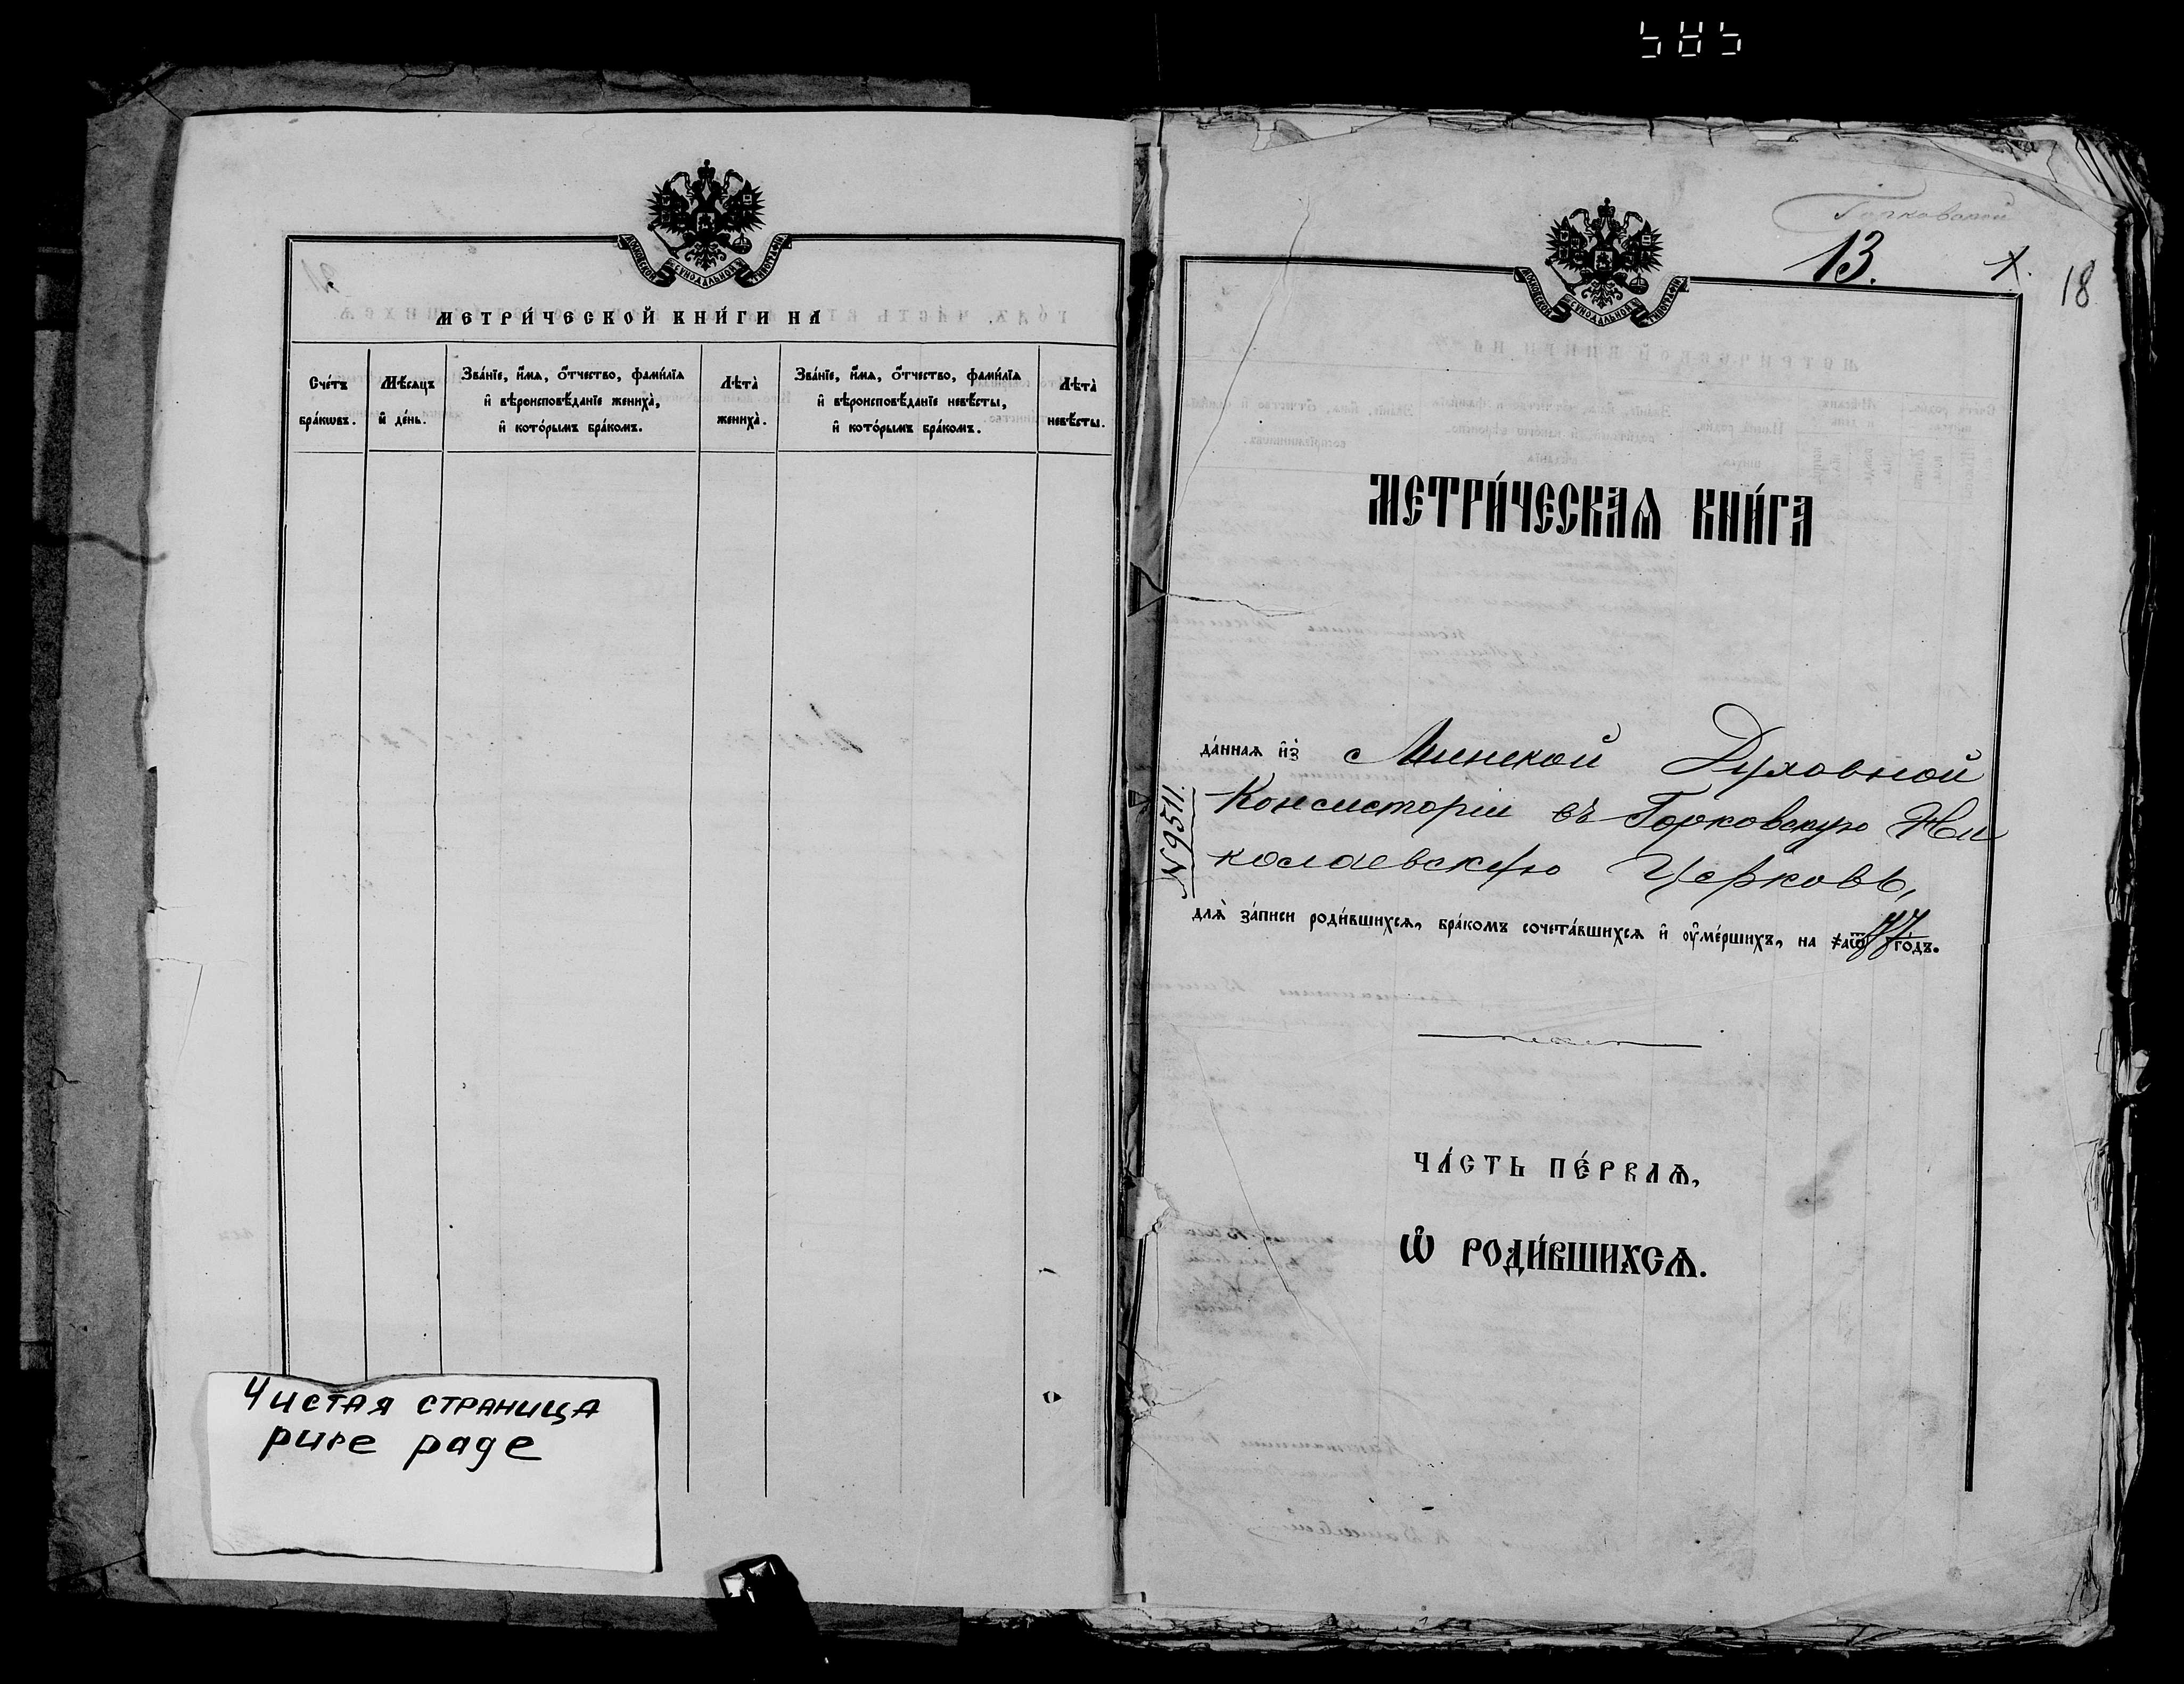 585
МОСКОВСКОЙ СѴНОДАЛЬНОЙ ТИПОГРАФІИ
МЕТРИ́ЧЕСКОЙ КНИ́ГИ НА
Сче́тъ бра́кѡвъ.
Мѣ́сяцъ и҆ де́нь.
Зва́нїе, и҆́мѧ, ѻ҆́тчество, фами́лїѧ
и҆ вѣроисповѣ́данїе жениха̀,
и҆ кото́рымъ бра́комъ.
Лѣта̀ жениха̀.
Зва́нїе, и҆́мѧ, ѻ҆́тчество, фами́лїѧ
и҆ вѣроисповѣ́данїе невѣ́сты,
и҆ кото́рымъ бра́комъ.
Лѣта̀ невѣ́сты.
Чистая страница
pure page
Горковской
13.
18
МОСКОВСКОЙ СѴНОДАЛЬНОЙ ТИПОГРАФІИ
МЕТРИ́ЧЕСКАѦ КНИ́ГА
да́ннаѧ и҆з̾ с Минской Духовной
Консисторіи въ Горковскую Ни
колаевскую Церковь,
N 9511.
длѧ̀ за́писи роди́вшихсѧ, бра́комъ сочета́вшихсѧ и҆ ᲂу҆ме́ршихъ, на ҂аѿ го́дъ.
ЧА́СТЬ ПЕ́РВАѦ,
Ѽ РОДИ́ВШИХСѦ.